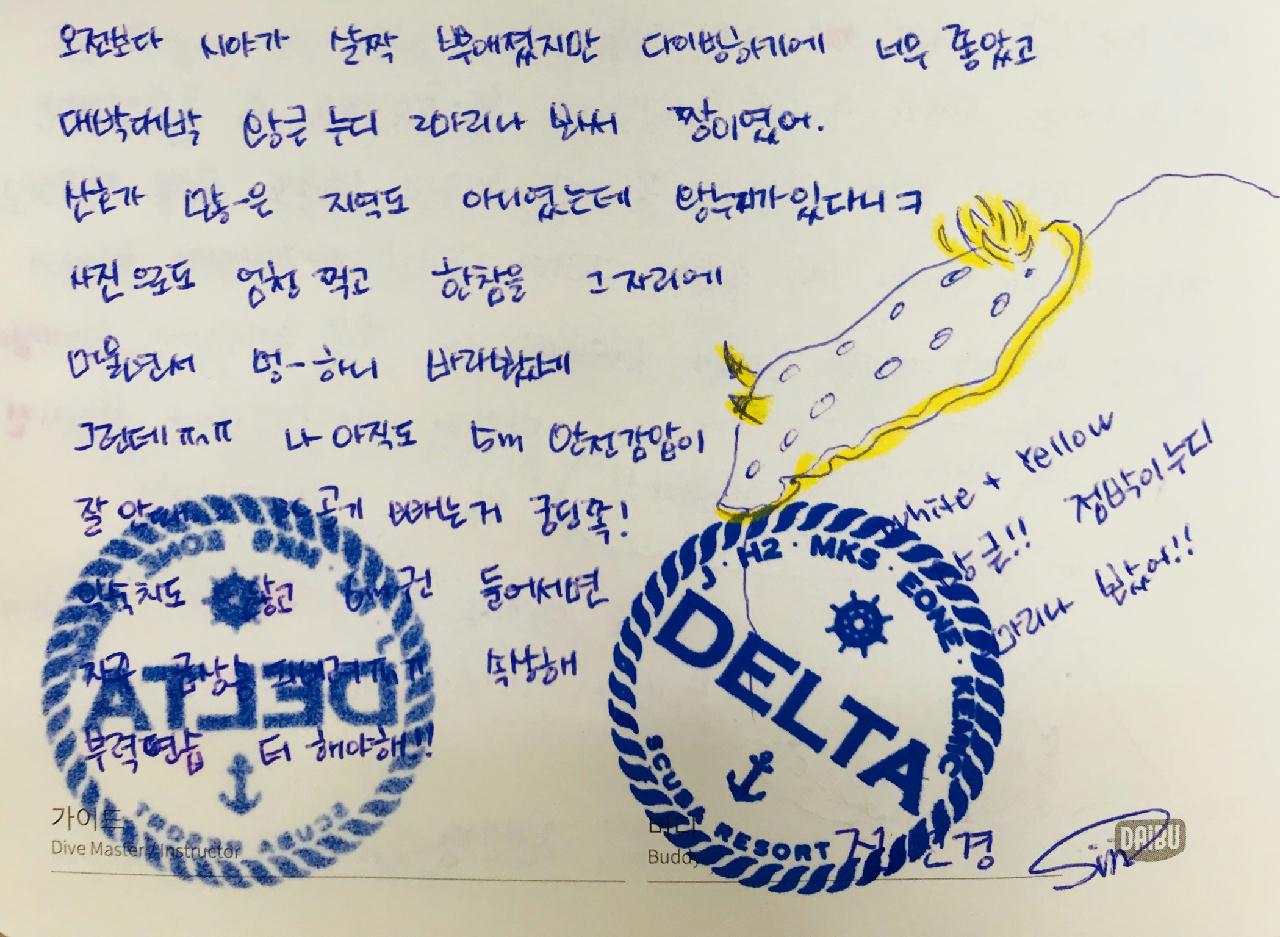 오전보다 시야가 살짝 뿌애졌지만 다이빙하기에 너무 좋았고
대박대박 왕큰 누디 2마리나 봐서 짱이였어.
산호가 많은 지역도 아니였는데 왕누디가있다니 ㅋ
사진으로도 엄청 찍고 한참을 그자리에
머물면서 멍-하니 바라봤네
그런데ㅠㅠ 나 아직도 5m 안전감압이
잘 빼는거
들어서면
속상해
부력연습 더 해야해!!
white + Yellow
왕큰!! 점박이누디
마리나 봤어!!
J · H2 · MKS · EONE · KEMIC
DELTA
SCUBA RESORT
DELTA
SCUBA RESORT
가이드
Dive Master / Instructor
Buddy
경
Sin
DAIBU